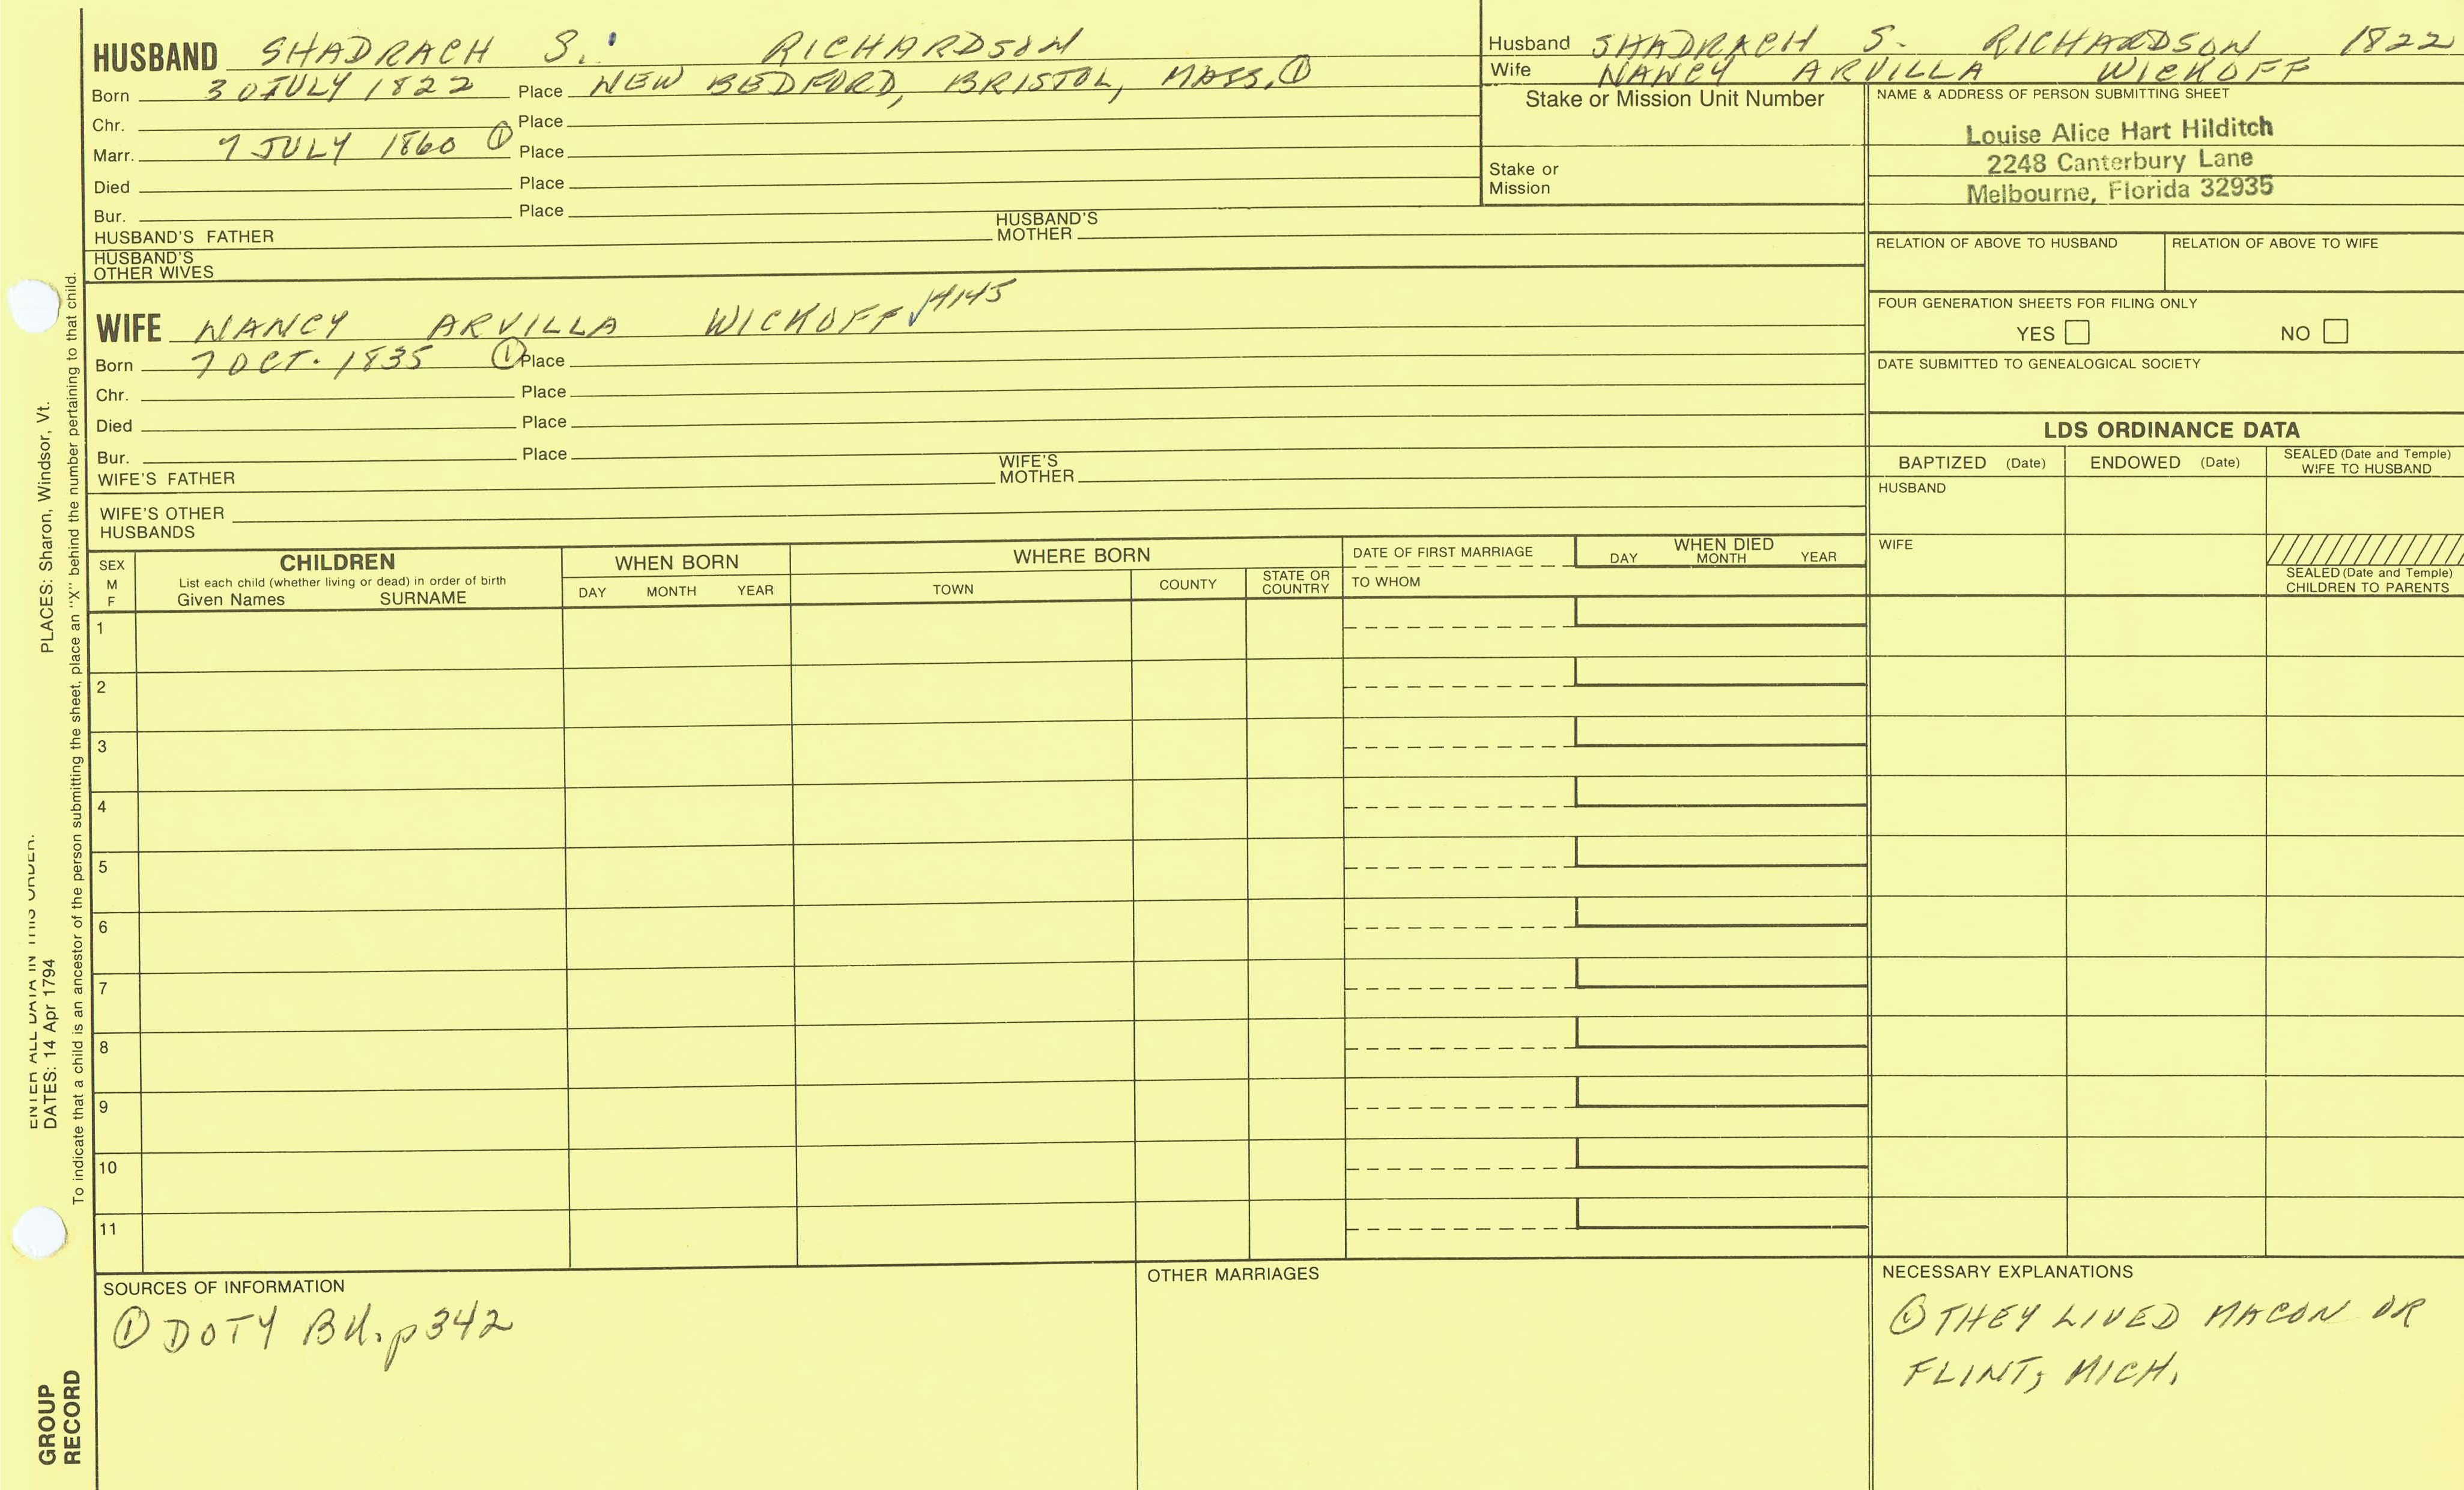 HUSBAND SHADRACH S. RICHARDSON
Born 30 JULY 1822 Place NEW BEDFORD, BRISTOL, MASS. ①
Chr. Place
Marr. 7 JULY 1860 ① Place
Died Place
Bur. Place
HUSBAND'S FATHER HUSBAND'S MOTHER
HUSBAND'S OTHER WIVES
WIFE NANCY ARVILLA WICKOFF √ 14145
Born 7 OCT. 1835 ① Place
Chr. Place
Died Place
Bur. Place
WIFE'S FATHER WIFE'S MOTHER
WIFE'S OTHER HUSBANDS
Husband SHADRACH S. RICHARDSON 1822
Wife NANCY ARVILLA WICKOFF
Stake or Mission Unit Number
Stake or
Mission
NAME & ADDRESS OF PERSON SUBMITTING SHEET
Louise Alice Hart Hilditch
2248 Canterbury Lane
Melbourne, Florida 32935
RELATION OF ABOVE TO HUSBAND RELATION OF ABOVE TO WIFE
FOUR GENERATION SHEETS FOR FILING ONLY
YES NO
DATE SUBMITTED TO GENEALOGICAL SOCIETY
LDS ORDINANCE DATA
BAPTIZED (Date) ENDOWED (Date) SEALED (Date and Temple) WIFE TO HUSBAND
HUSBAND
WIFE
SEALED (Date and Temple)
CHILDREN TO PARENTS
SEX
M
F
CHILDREN
List each child (whether living or dead) in order of birth
Given Names SURNAME
WHEN BORN
DAY MONTH YEAR
WHERE BORN
TOWN COUNTY STATE OR COUNTRY
DATE OF FIRST MARRIAGE
TO WHOM
WHEN DIED
DAY MONTH YEAR
1
2
3
4
5
6
7
8
9
10
11
SOURCES OF INFORMATION
① DOTY BK. p342
OTHER MARRIAGES
NECESSARY EXPLANATIONS
① THEY LIVED MACON OR
FLINT, MICH.
ENTER ALL DATA IN THIS ORDER:
DATES: 14 Apr 1794 PLACES: Sharon, Windsor, Vt.
To indicate that a child is an ancestor of the person submitting the sheet, place an "X" behind the number pertaining to that child.
GROUP
RECORD